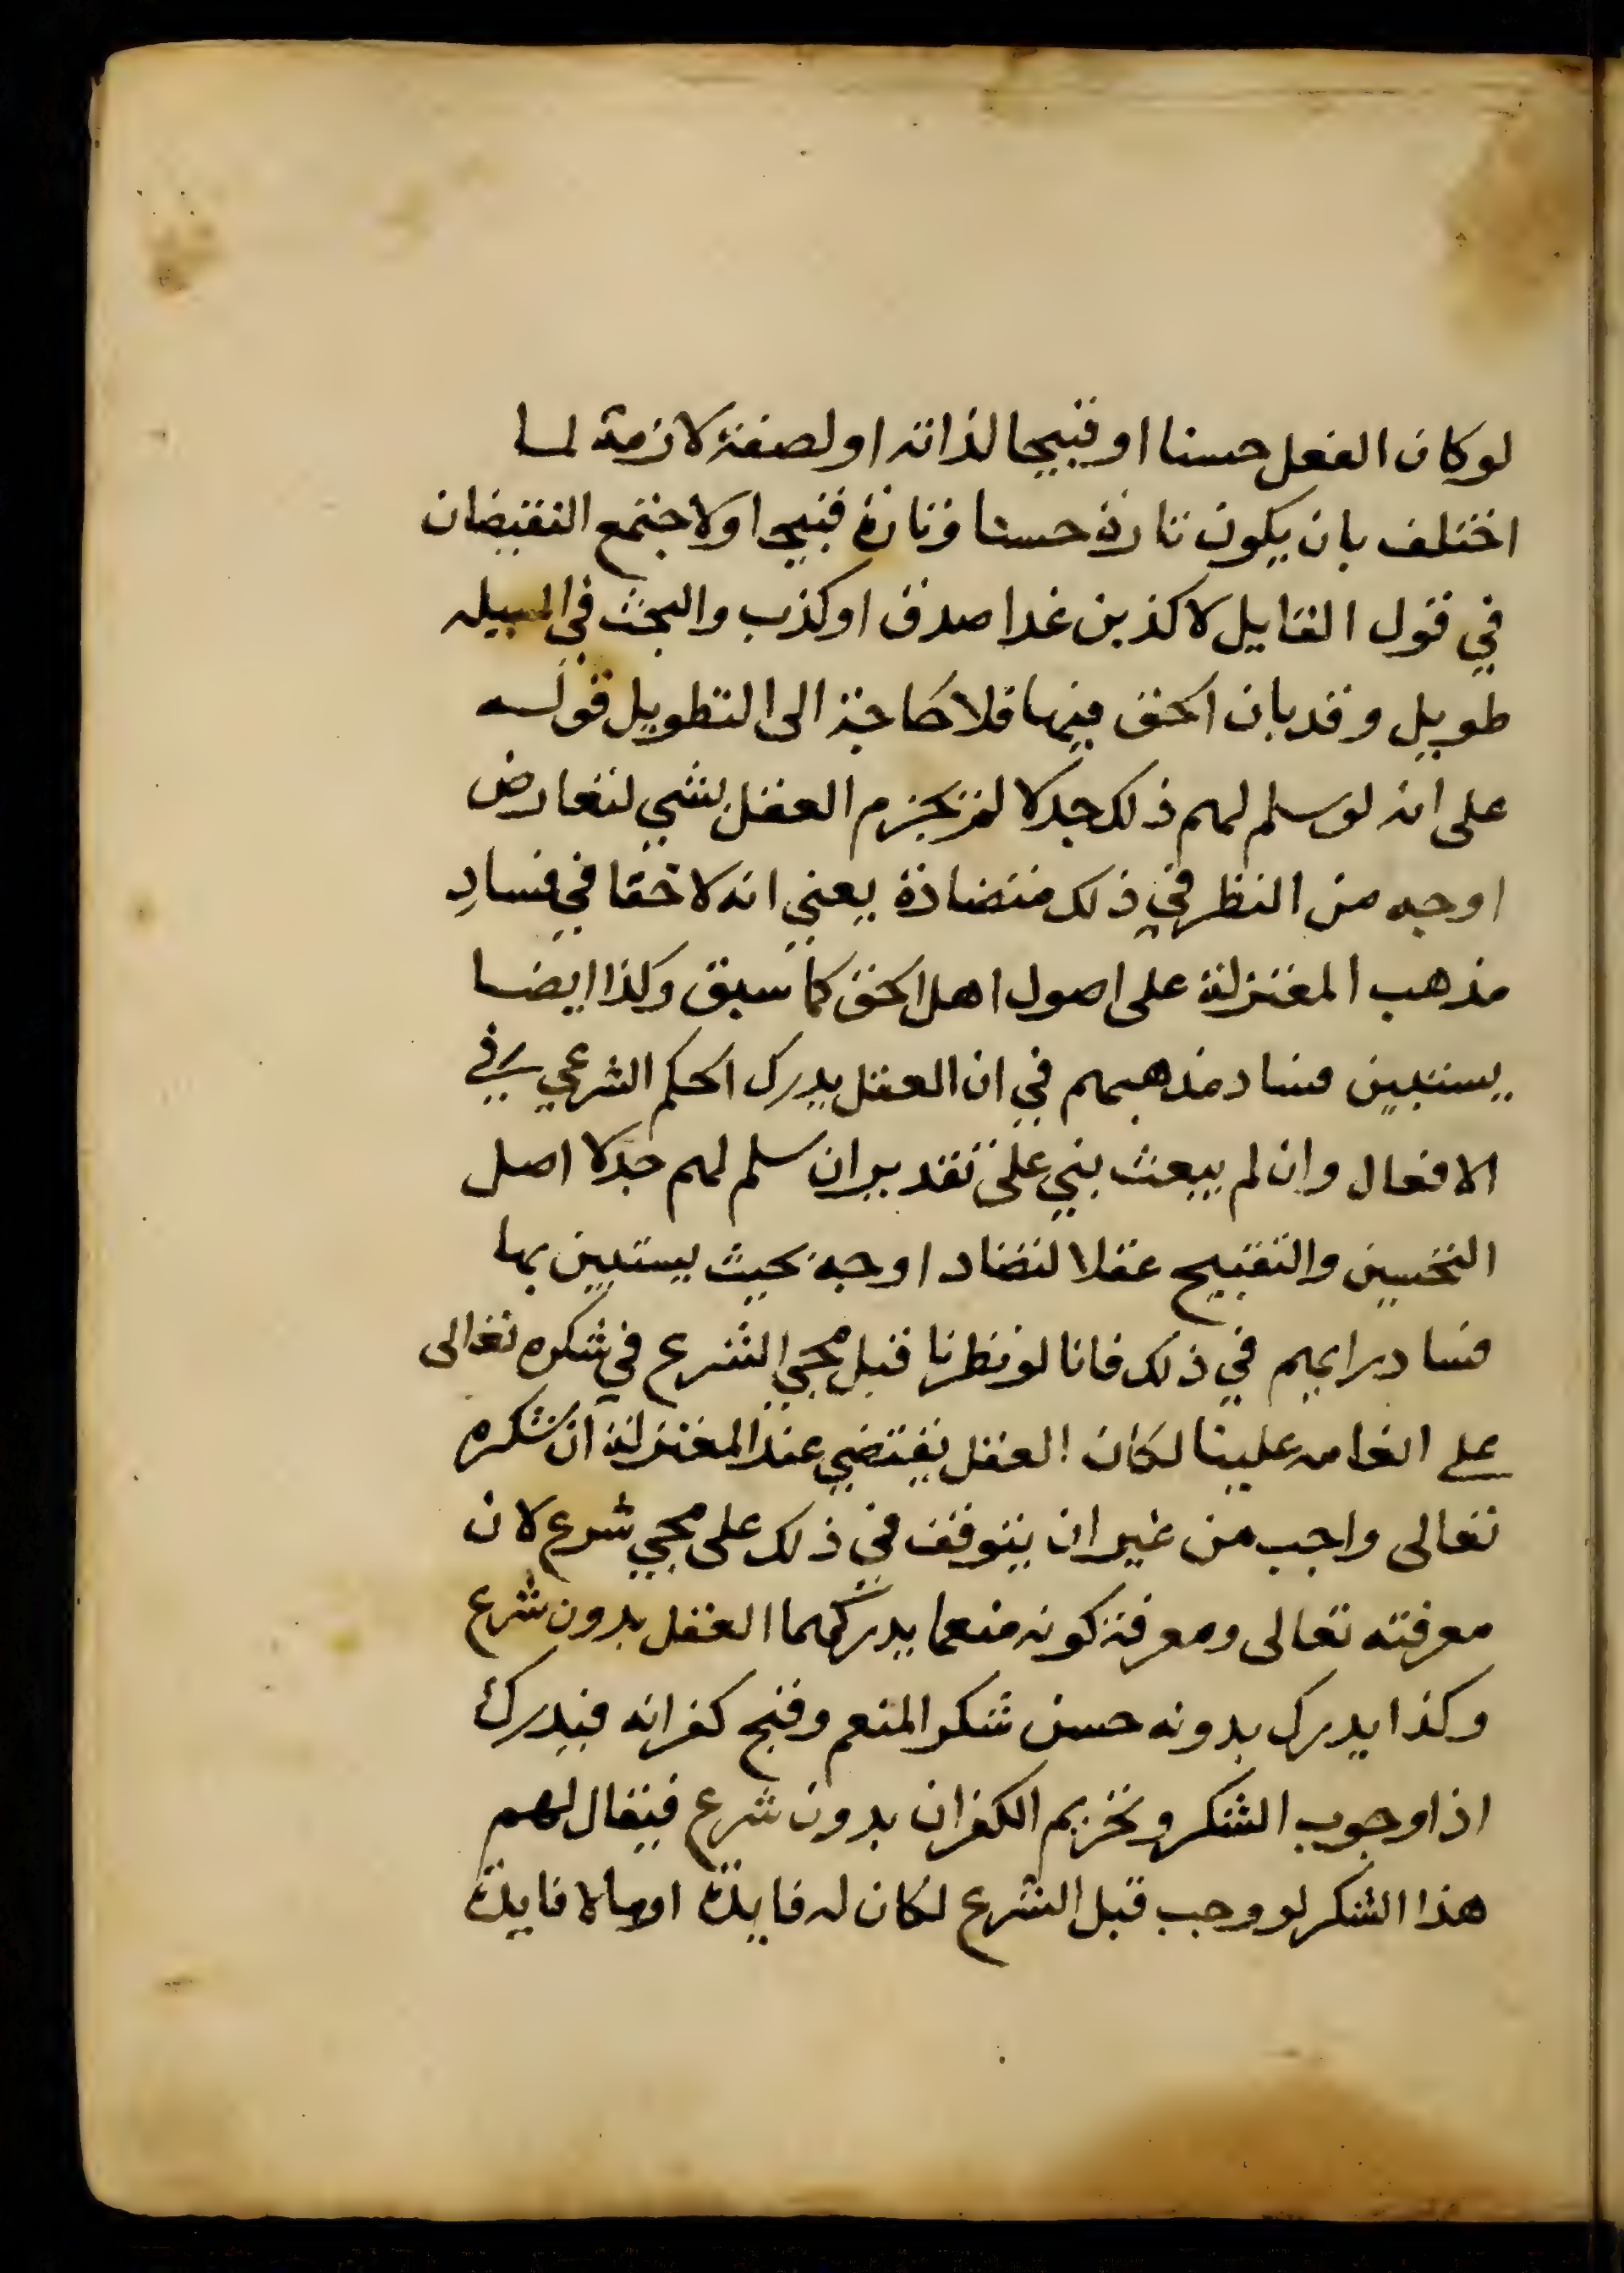 لو كان الفعل حسنا او قبيحا لذاته او لصفة لازمة لما
اختلف بان يكون تارة حسنا وتارة قبيحا ولاجتمع النقيضان
في قول القايل لاكذبن غدا صدق او كذب والبحث في المسيله
طويل وقد بان الحق فيها فلا حاجة الى التطويل قوله
على انه لو سلم لهم ذلك جدلا لم يجزم العقل بشي لتعارض
اوجه من النظر في ذلك متضادة يعني انه لا خفا في فساد
مذهب المعتزلة على اصول اهل الحق كما سبق وكذا ايضا
يستبين فساد مذهبهم في ان العقل يدرك الحكم الشرعي في
الافعال وان لم يبعث نبي على تقدير ان سلم لهم جدلا اصل
التحسين والتقبيح عقلا لتضاد اوجه بحيث يستبين بها
فساد رايهم في ذلك فانا لو نظرنا قبل مجي الشرع في شكره تعالى
على انعامه علينا لكان العقل يقتضي عند المعتزلة ان شكره
تعالى واجب من غير ان يتوقف في ذلك على مجي شرع لان
معرفته تعالى ومعرفة كونه منعما يدركهما العقل بدون شرع
وكذا يدرك بدونه حسن شكر المنعم وقبح كفرانه فيدرك
اذا وجوب الشكر وتحريم الكفران بدون شرع فيقال لهم
هذا الشكر لو وجب قبل الشرع لكان له فايدة او ما لا فايدة